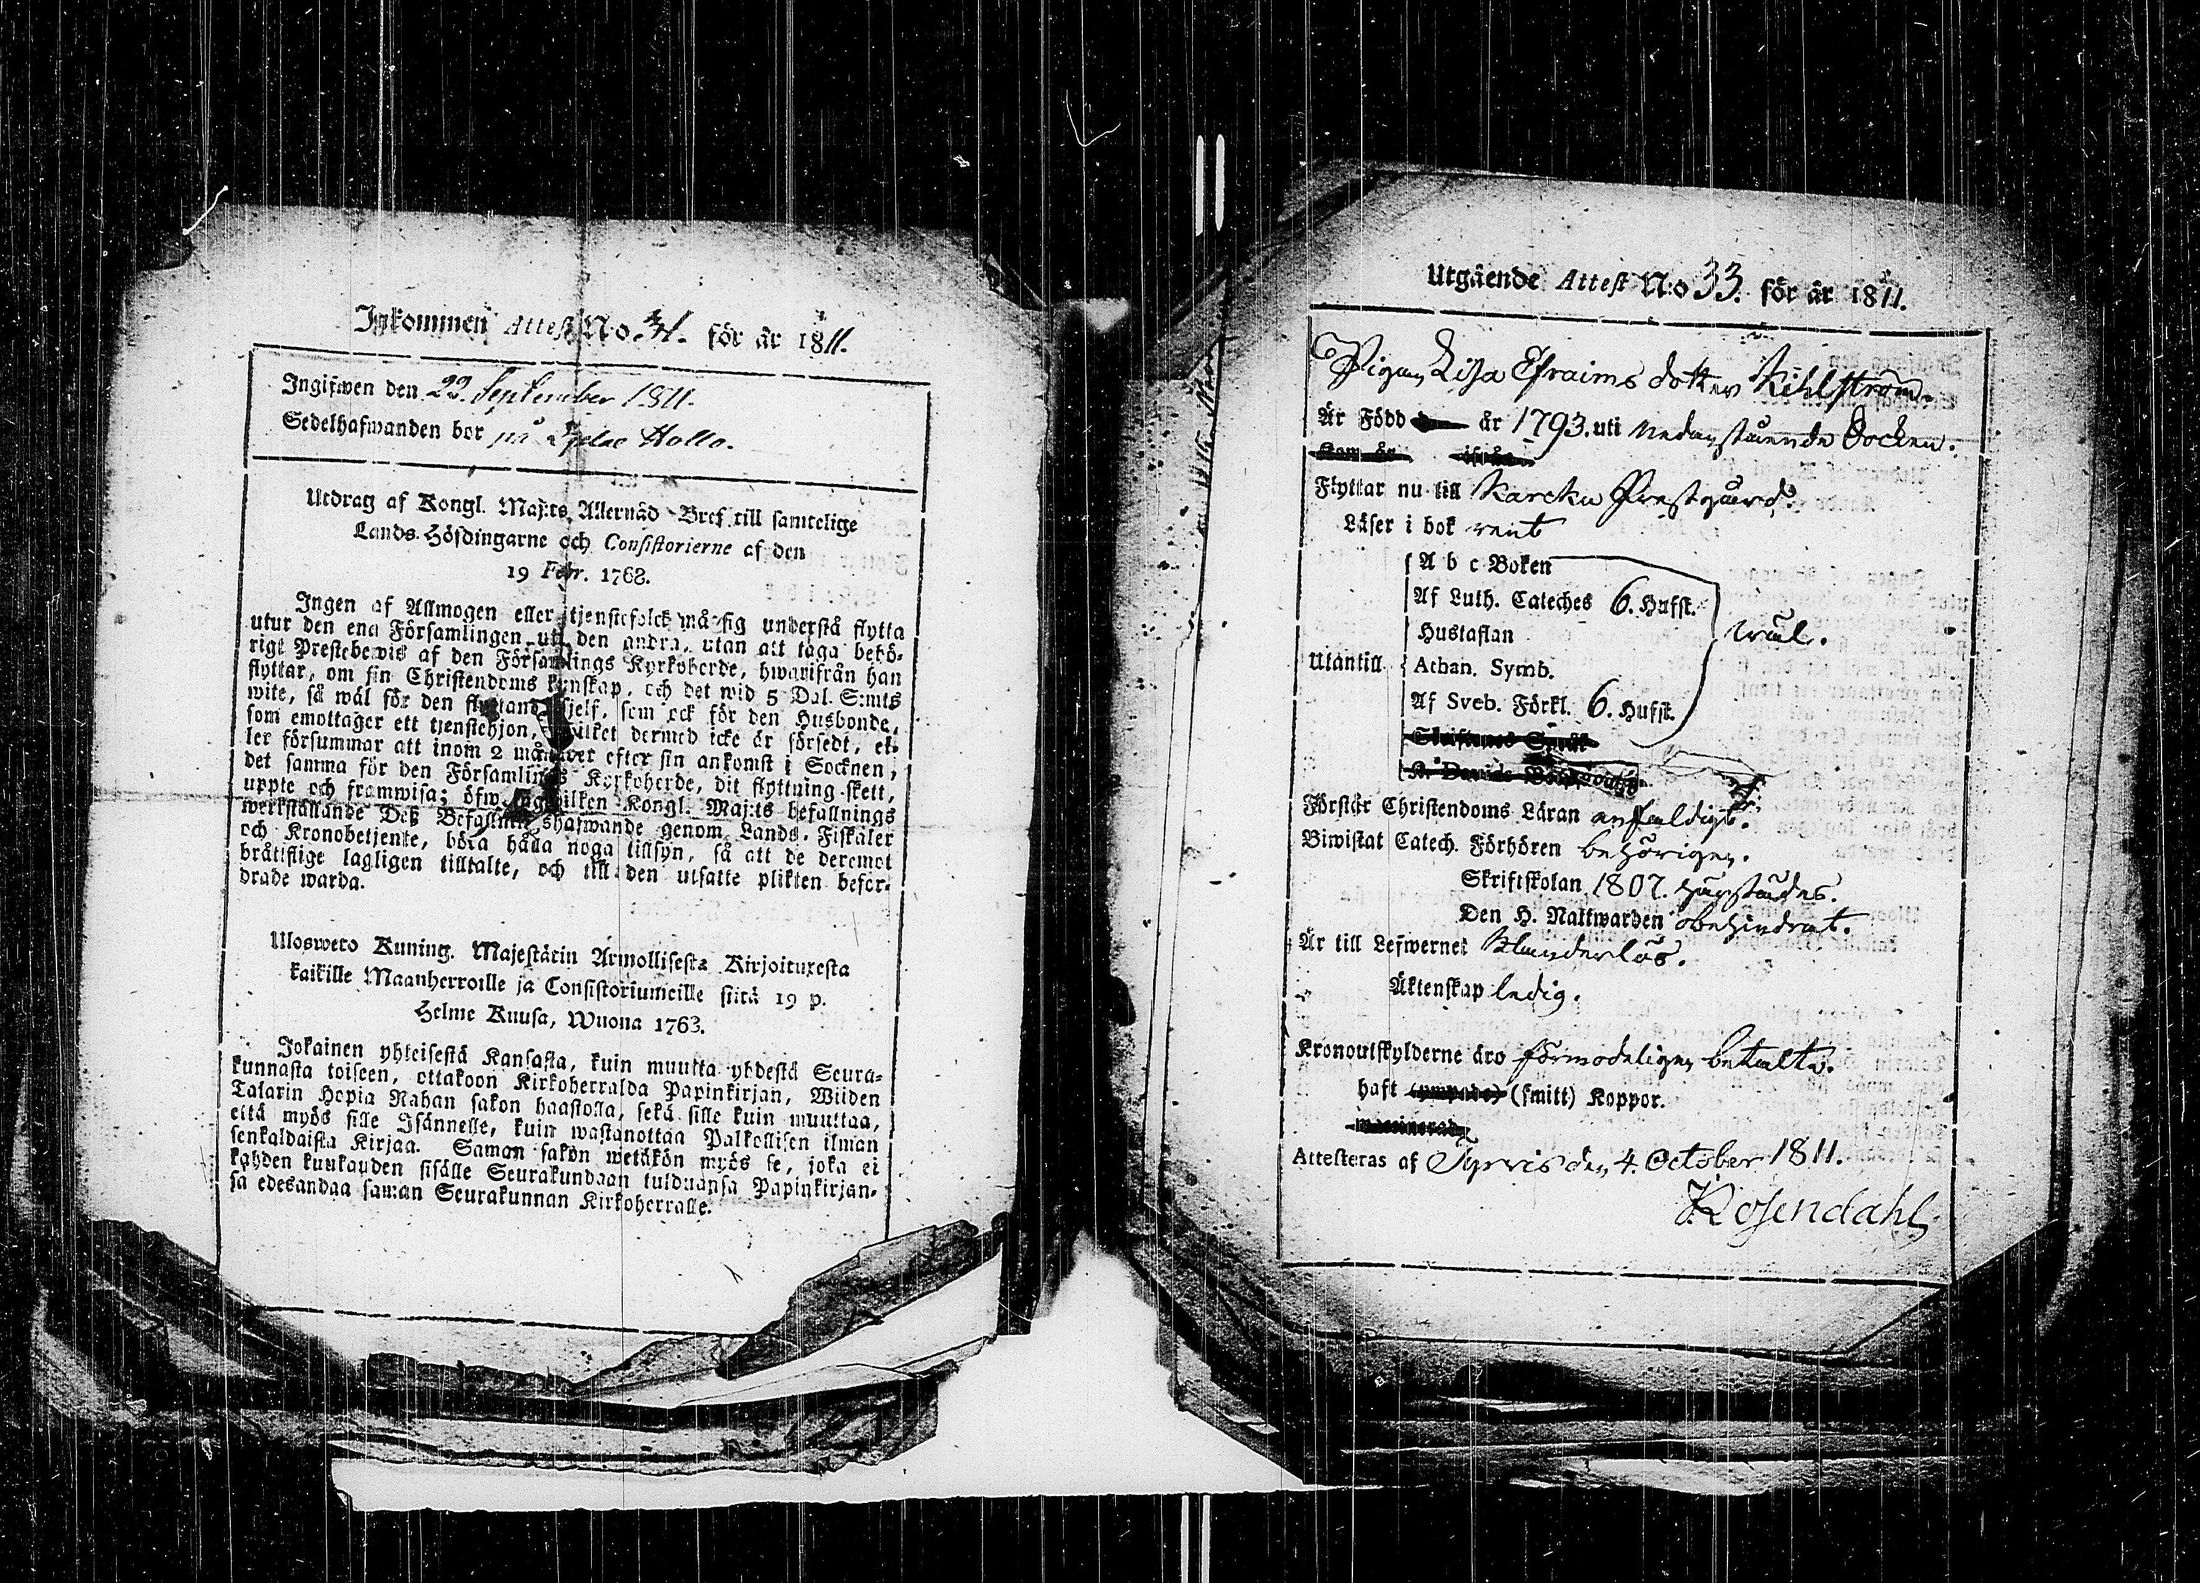 Inkommen Attest N:o för år 1811.
Ingifwen den 22 September 1811.
Sedelhafwanden bor på Hollo.
Utdrag af Kongl. Maj:ts Allernåd Bref till samtelige
Lands Höfdingarne och Consistorierne af den
19 Febr. 1768.
Ingen af Allmogen eller tjenstefolck må sig understå flytta
utur den ena Församlingen uti den andra, utan att taga behö-
rigt Prestebewis af den Församlings Kyrkoherde, hwarifrån han
flyttar, om sin Christendoms kunskap, och det wid 5 Dal. S:mts
wite, så wäl för den flyttande sjelf, som ock för den Husbonde,
som emottager ett tjenstehjon, hwilket dermed icke är försedt, el-
ler försummar att inom 2 månader efter sin ankomst i Socknen,
det samma för den Församlings Kyrkoherde, dit flyttning skett,
uppte och framwisa; öfwer hwilken Kongl. Maj:ts befallnings
werkställande Deß Befallningshafwande genom Lands-Fiskaler
och Kronobetjente, böra hålla noga tillsyn, så att de deremot
bråttslige lagligen tilltalte, och till den utsatte plikten befor-
drade warda.
Uloswero Kuning. Majestätin Armollisesta Kirjoituxesta
kaikille Maanherroille ja Consistoriumeille siitä 19 p.
Helme Kuusa, Wuona 1763.
Jokainen yhteisestä Kansasta, kuin muutta yhdestä Seura-
kunnasta toiseen, ottakoon Kirkoherralda Papinkirjan, Wiiden
Talarin Hopia Rahan sakon haastolla, sekä sille kuin muuttaa,
että myös sille Isännelle, kuin wastanottaa Palkollisen ilman
senkaldaista Kirjaa. Saman sakon wetäkön myös se, joka ei
kahden kuukauden sisälle Seurakundaan tulduansa Papinkirjan-
sa edesandaa saman Seurakunnan Kirkoherralle.
Utgående Attest N:o 33. för år 1811.
Pigan Lisa Efraims dotter Kihlström.
Är Född år 1793. uti nedanstående Socken.
Kom år ifrån
Flyttar nu till Karcku Prestgård.
Läser i bok rent
Utantill
A b c Boken
Af Luth. Cateches 6. Hufst.
Hustaflan
Athan. Symb.
Af Sveb. Förkl. 6. Hufst.
wäl.
Skriftenes Språk
K. Davids Botpsalmer
Förstår Christendoms Läran enfaldigt.
Biwistat Catech. Förhören behörigen.
Skriftskolan 1807. härstädes.
Den H. Nattwarden obehindrat.
Är till Lefwernet klanderlös.
Äktenskap ledig.
Kronoutskylderne äro förmodeligen betalte.
haft (ympade) (smitt) Koppor.
waccinerad
Attesteras af Tyrvis den 4. October 1811.
Rosendahl